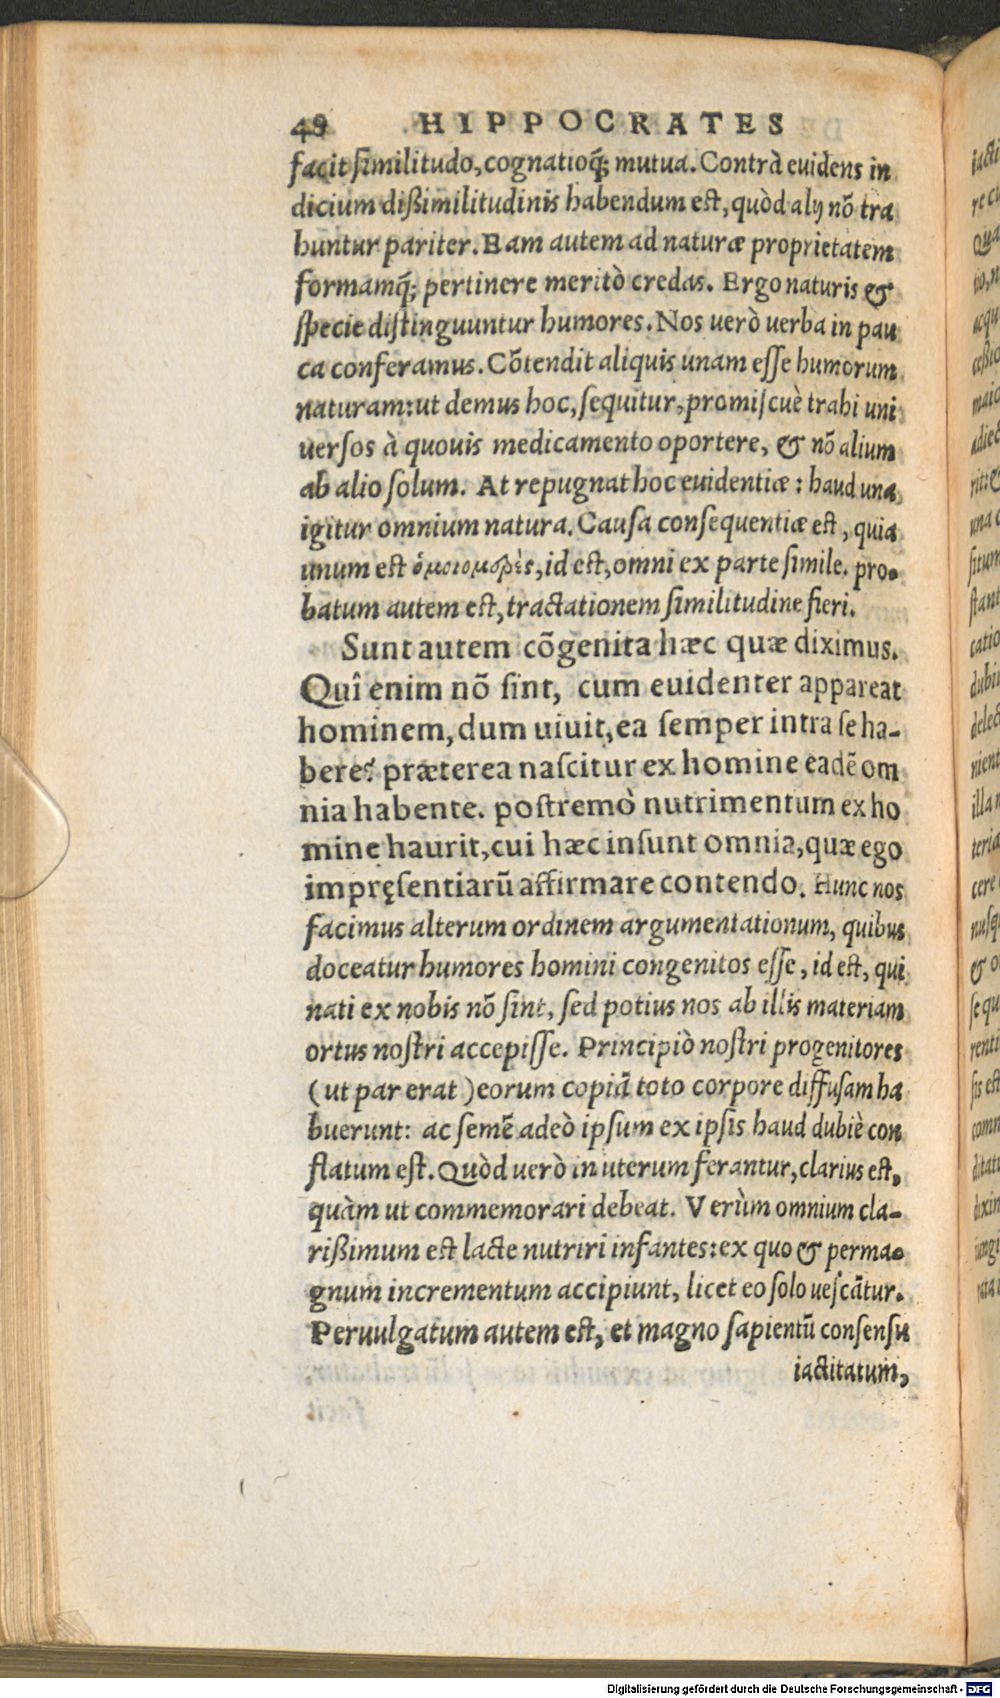 48 HIPPOCRATES
facit similitudo, cognatioq́; mutua. Contrà euidens in
dicium dißimilitudinis habendum est, quòd alij nõ tra
huntur pariter. Eam autem ad naturæ proprietatem
formamq́; pertinere meritò credas. Ergo naturis &
specie distinguuntur humores. Nos uerò uerba in pau
ca conferamus. Cõtendit aliquis unam esse humorum
naturam: ut demus hoc, sequitur, promiscuè trahi uni
uersos à quouis medicamento oportere, & nõ alium
ab alio solum. At repugnat hoc euidentiæ: haud una
igitur omnium natura. Causa consequentiæ est, quia
unum est ὁμοιομερὲς, id est, omni ex parte simile. pro-
batum autem est, tractationem similitudine fieri.
Sunt autem cõgenita hæc quæ diximus.
Quî enim nõ sint, cum euidenter appareat
hominem, dum uiuit, ea semper intra se ha-
bere? præterea nascitur ex homine eadẽ om
nia habente. postremò nutrimentum ex ho
mine haurit, cui hæc insunt omnia, quæ ego
impręsentiarũ affirmare contendo. Hunc nos
facimus alterum ordinem argumentationum, quibus
doceatur humores homini congenitos esse, id est, qui
nati ex nobis nõ sint, sed potius nos ab illis materiam
ortus nostri accepisse. Principiò nostri progenitores
(ut par erat) eorum copiã toto corpore diffusam ha
buerunt: ac semẽ adeò ipsum ex ipsis haud dubiè con
flatum est. Quòd uerò in uterum ferantur, clarius est,
quàm ut commemorari debeat. Verùm omnium cla-
rißimum est lacte nutriri infantes: ex quo & perma-
gnum incrementum accipiunt, licet eo solo uescãtur.
Peruulgatum autem est, et magno sapientũ consensu
iactitatum,
Digitalisierung gefördert durch die Deutsche Forschungsgemeinschaft - DFG